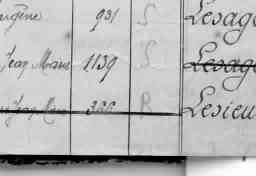 931 S Lesag
Jean Marie 1139 S Lesage
366 R Lesieu